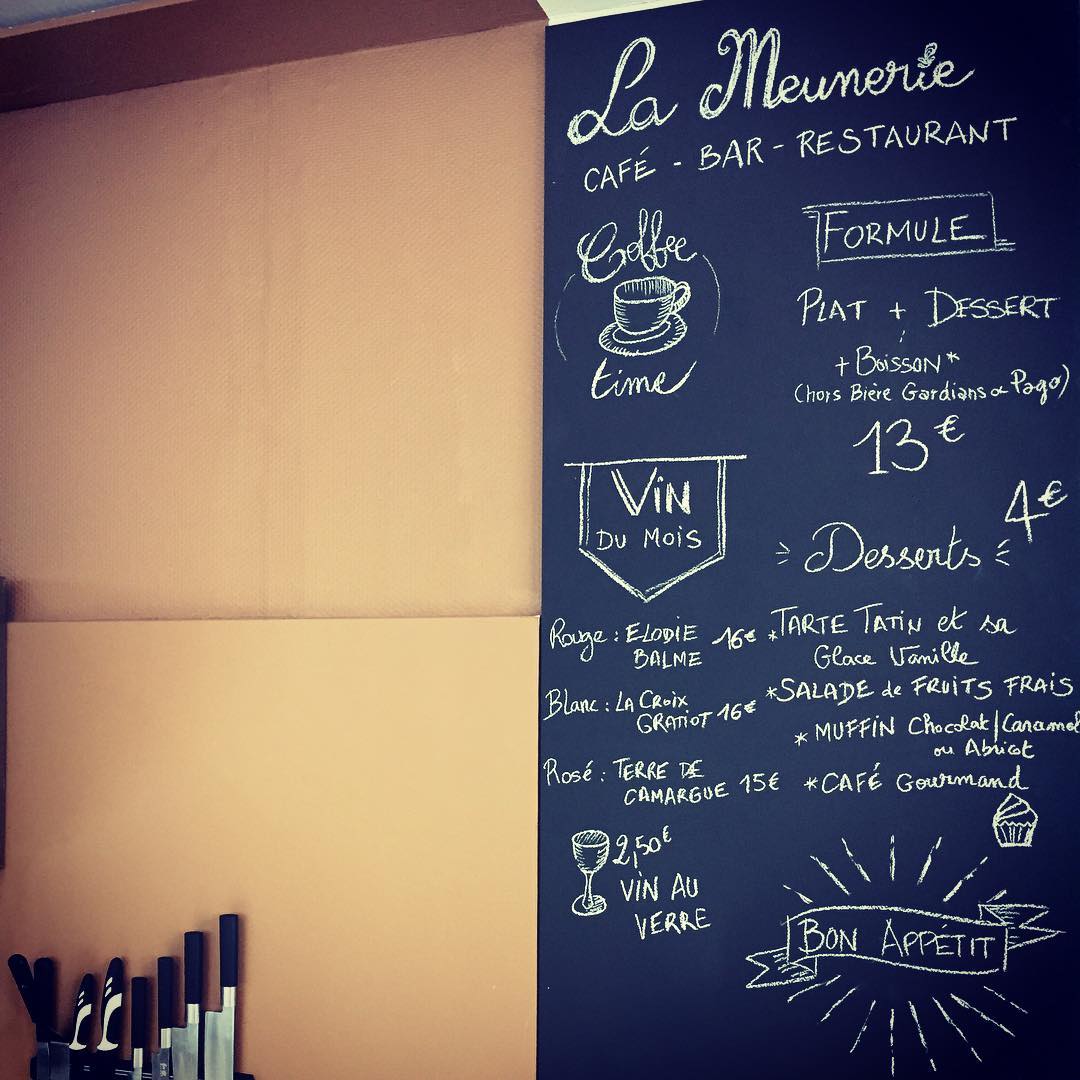 La Meunerie
CAFÉ - BAR - RESTAURANT
Coffee
time
FORMULE
PLAT + DESSERT
+ BOISSON*
(hors Bière Gardians & Pago)
13€
VIN
DU MOIS
Rouge : ELODIE 16€
BALME
Blanc : LA CROIX
GRATIOT 16€
Rosé : TERRE DE
CAMARGUE 15€
2,50€
VIN AU
VERRE
4€
Desserts
*TARTE TATIN et sa
Glace Vanille
*SALADE de FRUITS FRAIS
* MUFFIN Chocolat/Caramel
ou Abricot
*CAFÉ Gourmand
BON APPÉTIT